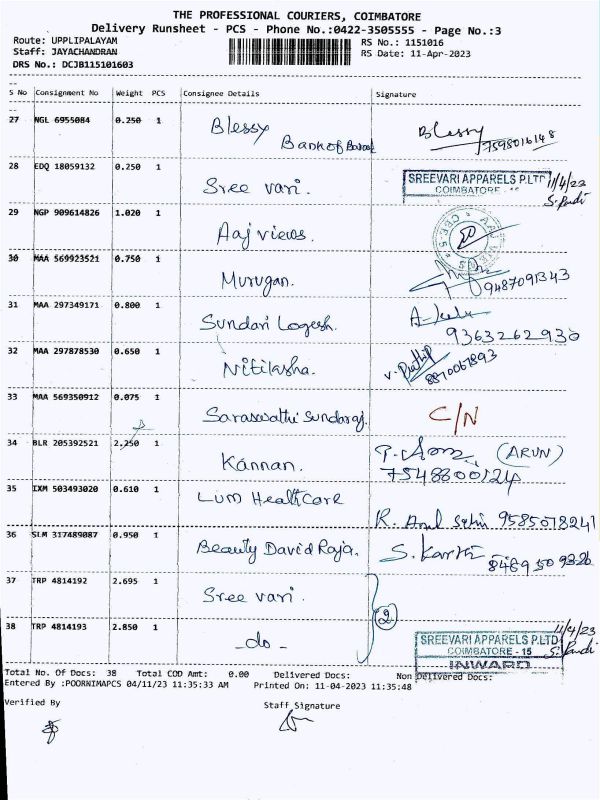 THE PROFESSIONAL COURIERS, COIMBATORE
Delivery Runsheet - PCS - Phone No.:0422-3505555 - Page No.:3
Route: UPPLIPALAYAM RS No.: 1151016
Staff: JAYACHANDRAN RS Date: 11-Apr-2023
DRS No.: DCJB115101603
S No Consignment No Weight PCS Consignee Details Signature
27 NGL 6955084 0.250 1 Blessy Bank of Blessy 7598016148
28 EDQ 18059132 0.250 1 Sree vari. SREEVARI APPARELS P.LTD 11/4/23
COIMBATORE - 15
29 NGP 909614826 1.020 1 Aaj views.
30 MAA 569923521 0.750 1 Murugan. 9487091343
31 MAA 297349171 0.800 1 Sundari Logesh. 9363262930
32 MAA 297878530 0.650 1 Nitiksha. 8870067893
33 MAA 569350912 0.075 1 Saraswathi Sundaraj. C/N
34 BLR 205392521 2.250 1 Kannan. (ARUN)
7548800124
35 IXM 503493020 0.610 1 Lum Healthcare 9585078241
36 SLM 317489087 0.950 1 Beauty David Raja. S. Karthi 8489509326
37 TRP 4814192 2.695 1 Sree vari. 2
38 TRP 4814193 2.850 1 -do- 11/4/23
SREEVARI APPARELS P.LTD
COIMBATORE - 15
INWARD
Total No. Of Docs: 38 Total COD Amt: 0.00 Delivered Docs: Non Delivered Docs:
Entered By :POORNIMAPCS 04/11/23 11:35:33 AM Printed On: 11-04-2023 11:35:48
Verified By Staff Signature